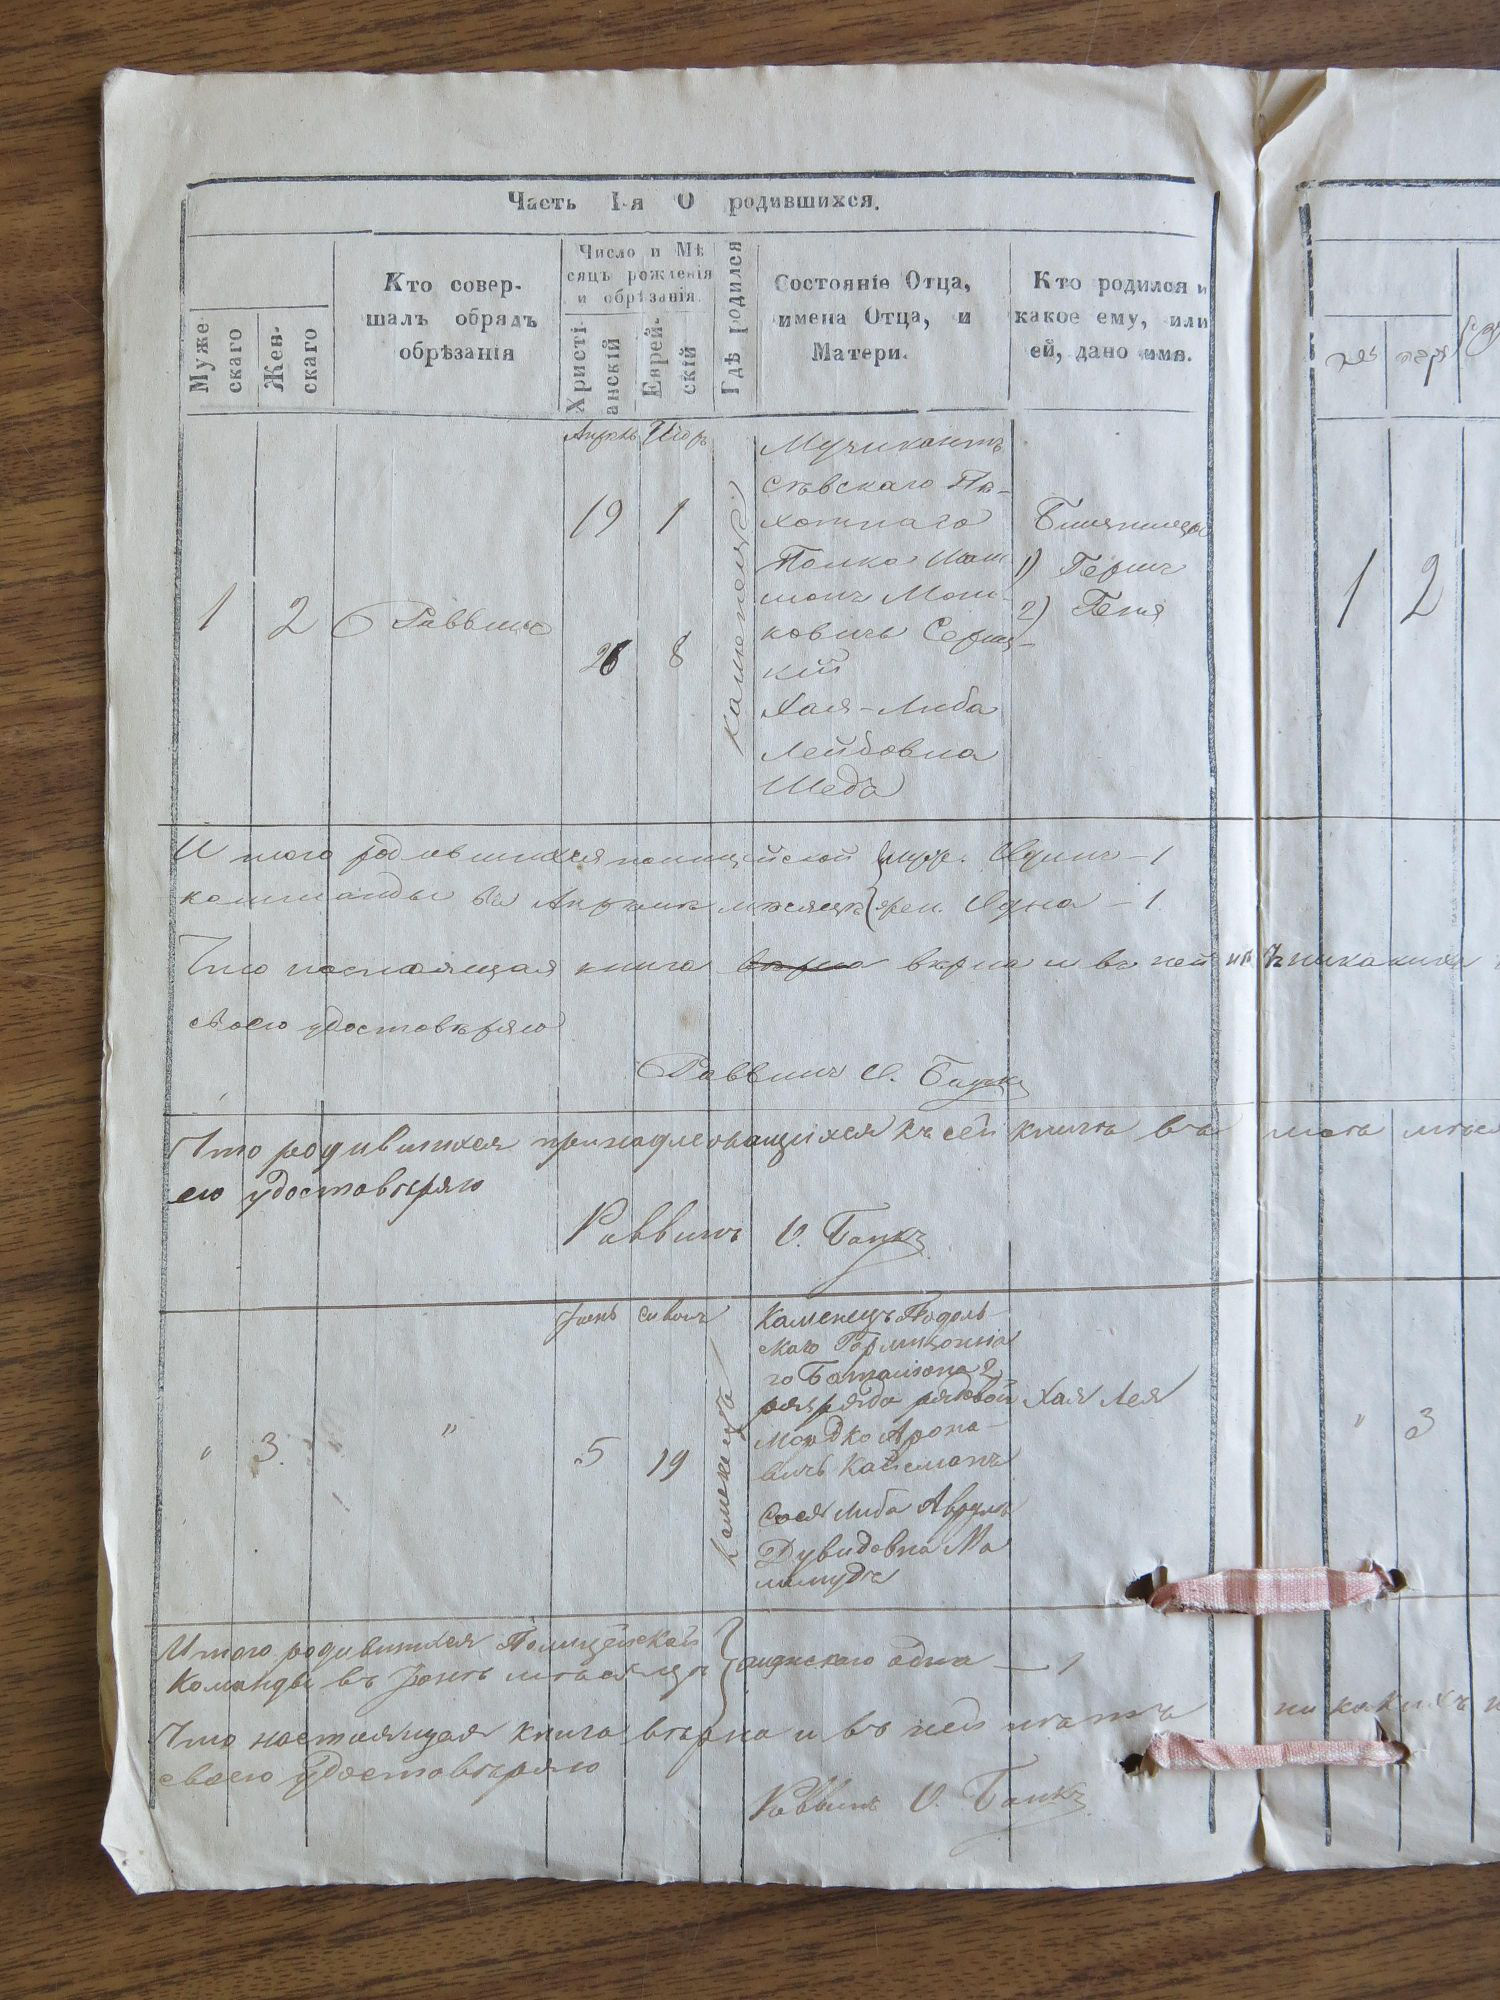 Часть I-я О родившихся.
Муже
скаго
Жен-
скаго
Кто совер-
шалъ обрядъ
обрѣзанія
Число и Мѣ
сяцъ рожденія
и обрѣзанія.
Христі-
анскій
Еврей-
скій
Гдѣ родился
Состояніе Отца,
имена Отца, и
Матери.
Кто родился и
какое ему, или
ей, дано имя.
Апрель Иіоръ
19 1
26 8
1 2 Раввинъ
Каменецъ
Музикантъ
Пѣ-
хотнаго
Полка
Мош-
ковичъ
кій
Хая-Либа
Лейбовна
Шедъ
Близнецы
1) Гершъ
2) Геня
1 2
Итого родившихся полицейской муж. Одинъ - 1
комманды въ Апрѣлѣ мѣсяцѣ жен. Одна - 1
Что настоящая книга вѣрна вѣрна и въ ней нѣтъ никакихъ
своею удостовѣряю
Раввинъ О. Банкъ
Что родившихся принадлежащихся къ сей книгѣ въ маѣ мѣся
ею удостовѣряю
Раввинъ О. Банкъ
Іюнь Сиванъ
" 3 " 5 19
Каменецъ
Каменецъ Подоль-
скаго Гарнизонна
го Баталіона 2
разряда рядовой
Мордко Арона-
вичъ Кайсманъ
Сося Либа Аврумъ
Дувидовна Ма
ламудъ
Хая Лея
" 3
Итого родившихся Полицейской
Команды въ Іюнѣ мѣсяцѣ женскаго одна — 1
Что настоящая книга вѣрна и въ ней нѣтъ никакихъ
своею удостовѣряю
Раввинъ О. Банкъ